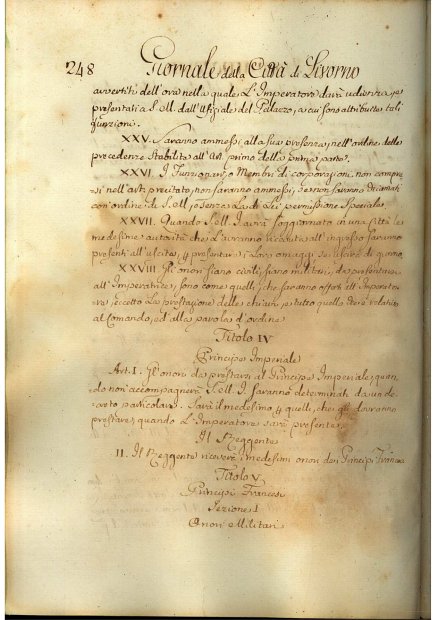 248 Giornale della Città di Livorno
avvertiti dell'ora nella quale L'Imperatore darà udienza, e
presentati a S. M. dall'Ufiziale del Palazzo, a cui sono attribuite tali
funzioni.
XXV. Saranno ammessi alla sua presenza, nell'ordine delle
precedenze stabilita all'Art. primo della prima parte.
XXVI. I Funzionarj, o Membri di corporazioni non compre-
si nell'art. precitato, non saranno ammessi, se non saranno chiamati
con ordine di S. M. o senza La di Lei permissione speciale.
XXVII. Quando S. M. I. avrà soggiornato in una città le
medesime autorità che L'avranno ricevuta all'ingresso saranno
presenti all'uscita, p. presentare i Loro omaggi se uscirà di giorno.
XXVIII. Gli onori siano civili, siano militari, da presentarsi
all'Imperatrice, sono come quelli che saranno offerti all'Impera-
tore, eccetto La prestazione delle chiavi, e tutto quello che è relativo
al Comando, ed alla parola d'ordine
Titolo IV
Principe Imperiale
Art. I. Gli onori da prestarsi al Principe Imperiale, quan-
do non accompagnerà S. M. I. saranno determinati da un de-
creto particolare. Sarà il medesimo p. quelli, che gli dovranno
prestare, quando L'Imperatore sarà presente.
Il Reggente
II. Il Reggente riceverà i medesimi onori dei Principi Francesi
Titolo V
Principi Francesi
Sezione I
Onori Militari